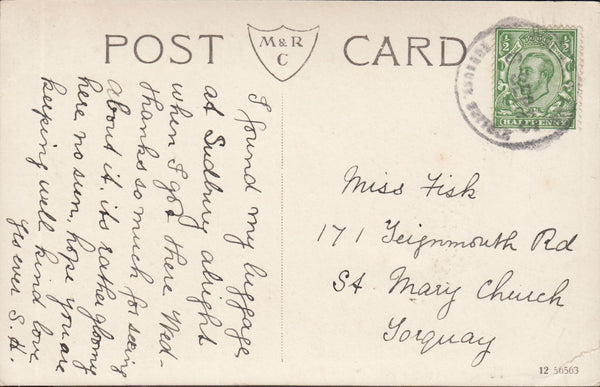 POST CARD
M & R
C
½ ½
HALFPENNY
I found my luggage
at Sudbury alright
when I got there Wed-
thanks so much for seeing
about it. its rather gloomy
here no sun, hope you are
keeping well kind love
Yrs ever S. H.
Miss Fisk
171 Teignmouth Rd
St. Mary Church
Torquay
12 56563